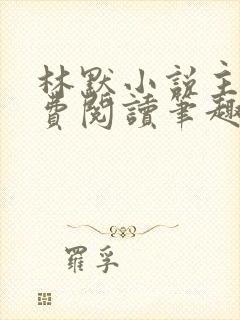 林默小说主
費閱讀筆趣
羅孚